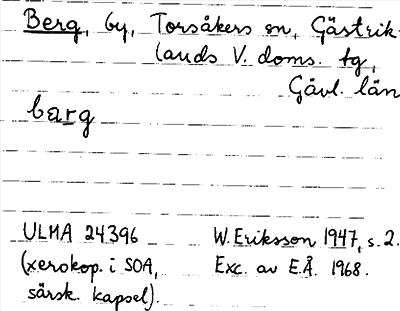 Berg, by, Torsåkers sn, Gästrik-
lands V. doms. tg,
Gävl. län
barg
ULMA 24396
(xerokop. i SOA,
särsk. kapsel).
W. Eriksson 1947, s. 2.
Exc. av E.Å. 1968.